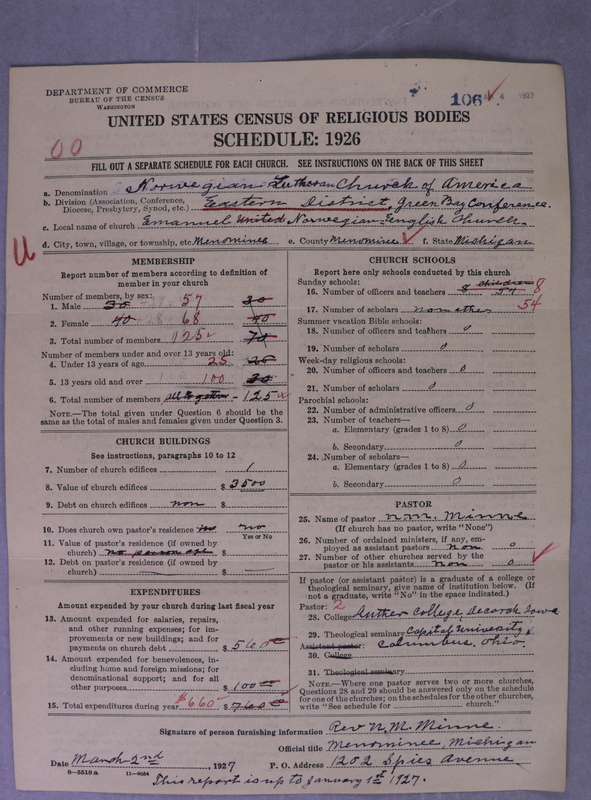 DEPARTMENT OF COMMERCE
BUREAU OF THE CENSUS
WASHINGTON
106 4 1927
UNITED STATES CENSUS OF RELIGIOUS BODIES
SCHEDULE: 1926
00
FILL OUT A SEPARATE SCHEDULE FOR EACH CHURCH. SEE INSTRUCTIONS ON THE BACK OF THIS SHEET
a. Denomination Norwegian Lutheran Church of America
b. Division (Association, Conference, Diocese, Presbytery, Synod, etc.) Eastern District, Green Bay Conference.
c. Local name of church Emanuel United Norwegian-English Church.
d. City, town, village, or township, etc. Menominee e. County Menominee f. State Michigan
MEMBERSHIP
Report number of members according to definition of
member in your church
Number of members, by sex:
1. Male 30 57 30
2. Female 40 68 40
3. Total number of members 125 70
Number of members under and over 13 years old:
4. Under 13 years of age 25 25
5. 13 years old and over 100 30
6. Total number of members All together - 125
NOTE.—The total given under Question 6 should be the
same as the total of males and females given under Question 3.
CHURCH BUILDINGS
See instructions, paragraphs 10 to 12
7. Number of church edifices 1
8. Value of church edifices $ 3500
9. Debt on church edifices non $
10. Does church own pastor's residence no
Yes or No
11. Value of pastor's residence (if owned by
church) no parsonage $
12. Debt on pastor's residence (if owned by
church) $
EXPENDITURES
Amount expended by your church during last fiscal year
13. Amount expended for salaries, repairs,
and other running expenses; for im-
provements or new buildings; and for
payments on church debt $ 560
14. Amount expended for benevolences, in-
cluding home and foreign missions; for
denominational support; and for all
other purposes 100
15. Total expenditures during year $660 $ 760
CHURCH SCHOOLS
Report here only schools conducted by this church
Sunday schools: children
16. Number of officers and teachers 8 54 8
17. Number of scholars 54
Summer vacation Bible schools:
18. Number of officers and teachers 0
19. Number of scholars 0
Week-day religious schools:
20. Number of officers and teachers 0
21. Number of scholars 0
Parochial schools:
22. Number of administrative officers 0
23. Number of teachers—
a. Elementary (grades 1 to 8) 0
b. Secondary 0
24. Number of scholars—
a. Elementary (grades 1 to 8) 0
b. Secondary 0
PASTOR
25. Name of pastor N.M. Minne
(If church has no pastor, write "None")
26. Number of ordained ministers, if any, em-
ployed as assistant pastors non 0
27. Number of other churches served by the
pastor or his assistants non 0
If pastor (or assistant pastor) is a graduate of a college or
theological seminary, give name of institution below. (If
not a graduate, write "No" in the space indicated.)
Pastor: 2
28. College Luther College, Decorah Iowa
29. Theological seminary Capital University,
Assistant pastor: Columbus, Ohio.
30. College
31. Theological seminary
NOTE.—Where one pastor serves two or more churches,
Questions 28 and 29 should be answered only on the schedule
for one of the churches; on the schedules for the other churches,
write "See schedule for church."
Signature of person furnishing information Rev N. M. Minne.
Official title Menominee, Michigan
Date March 2nd, 1927 P. O. Address 1202 Spies Avenue
8—5518 a 11—9054
This report is up to January 1st 1927.